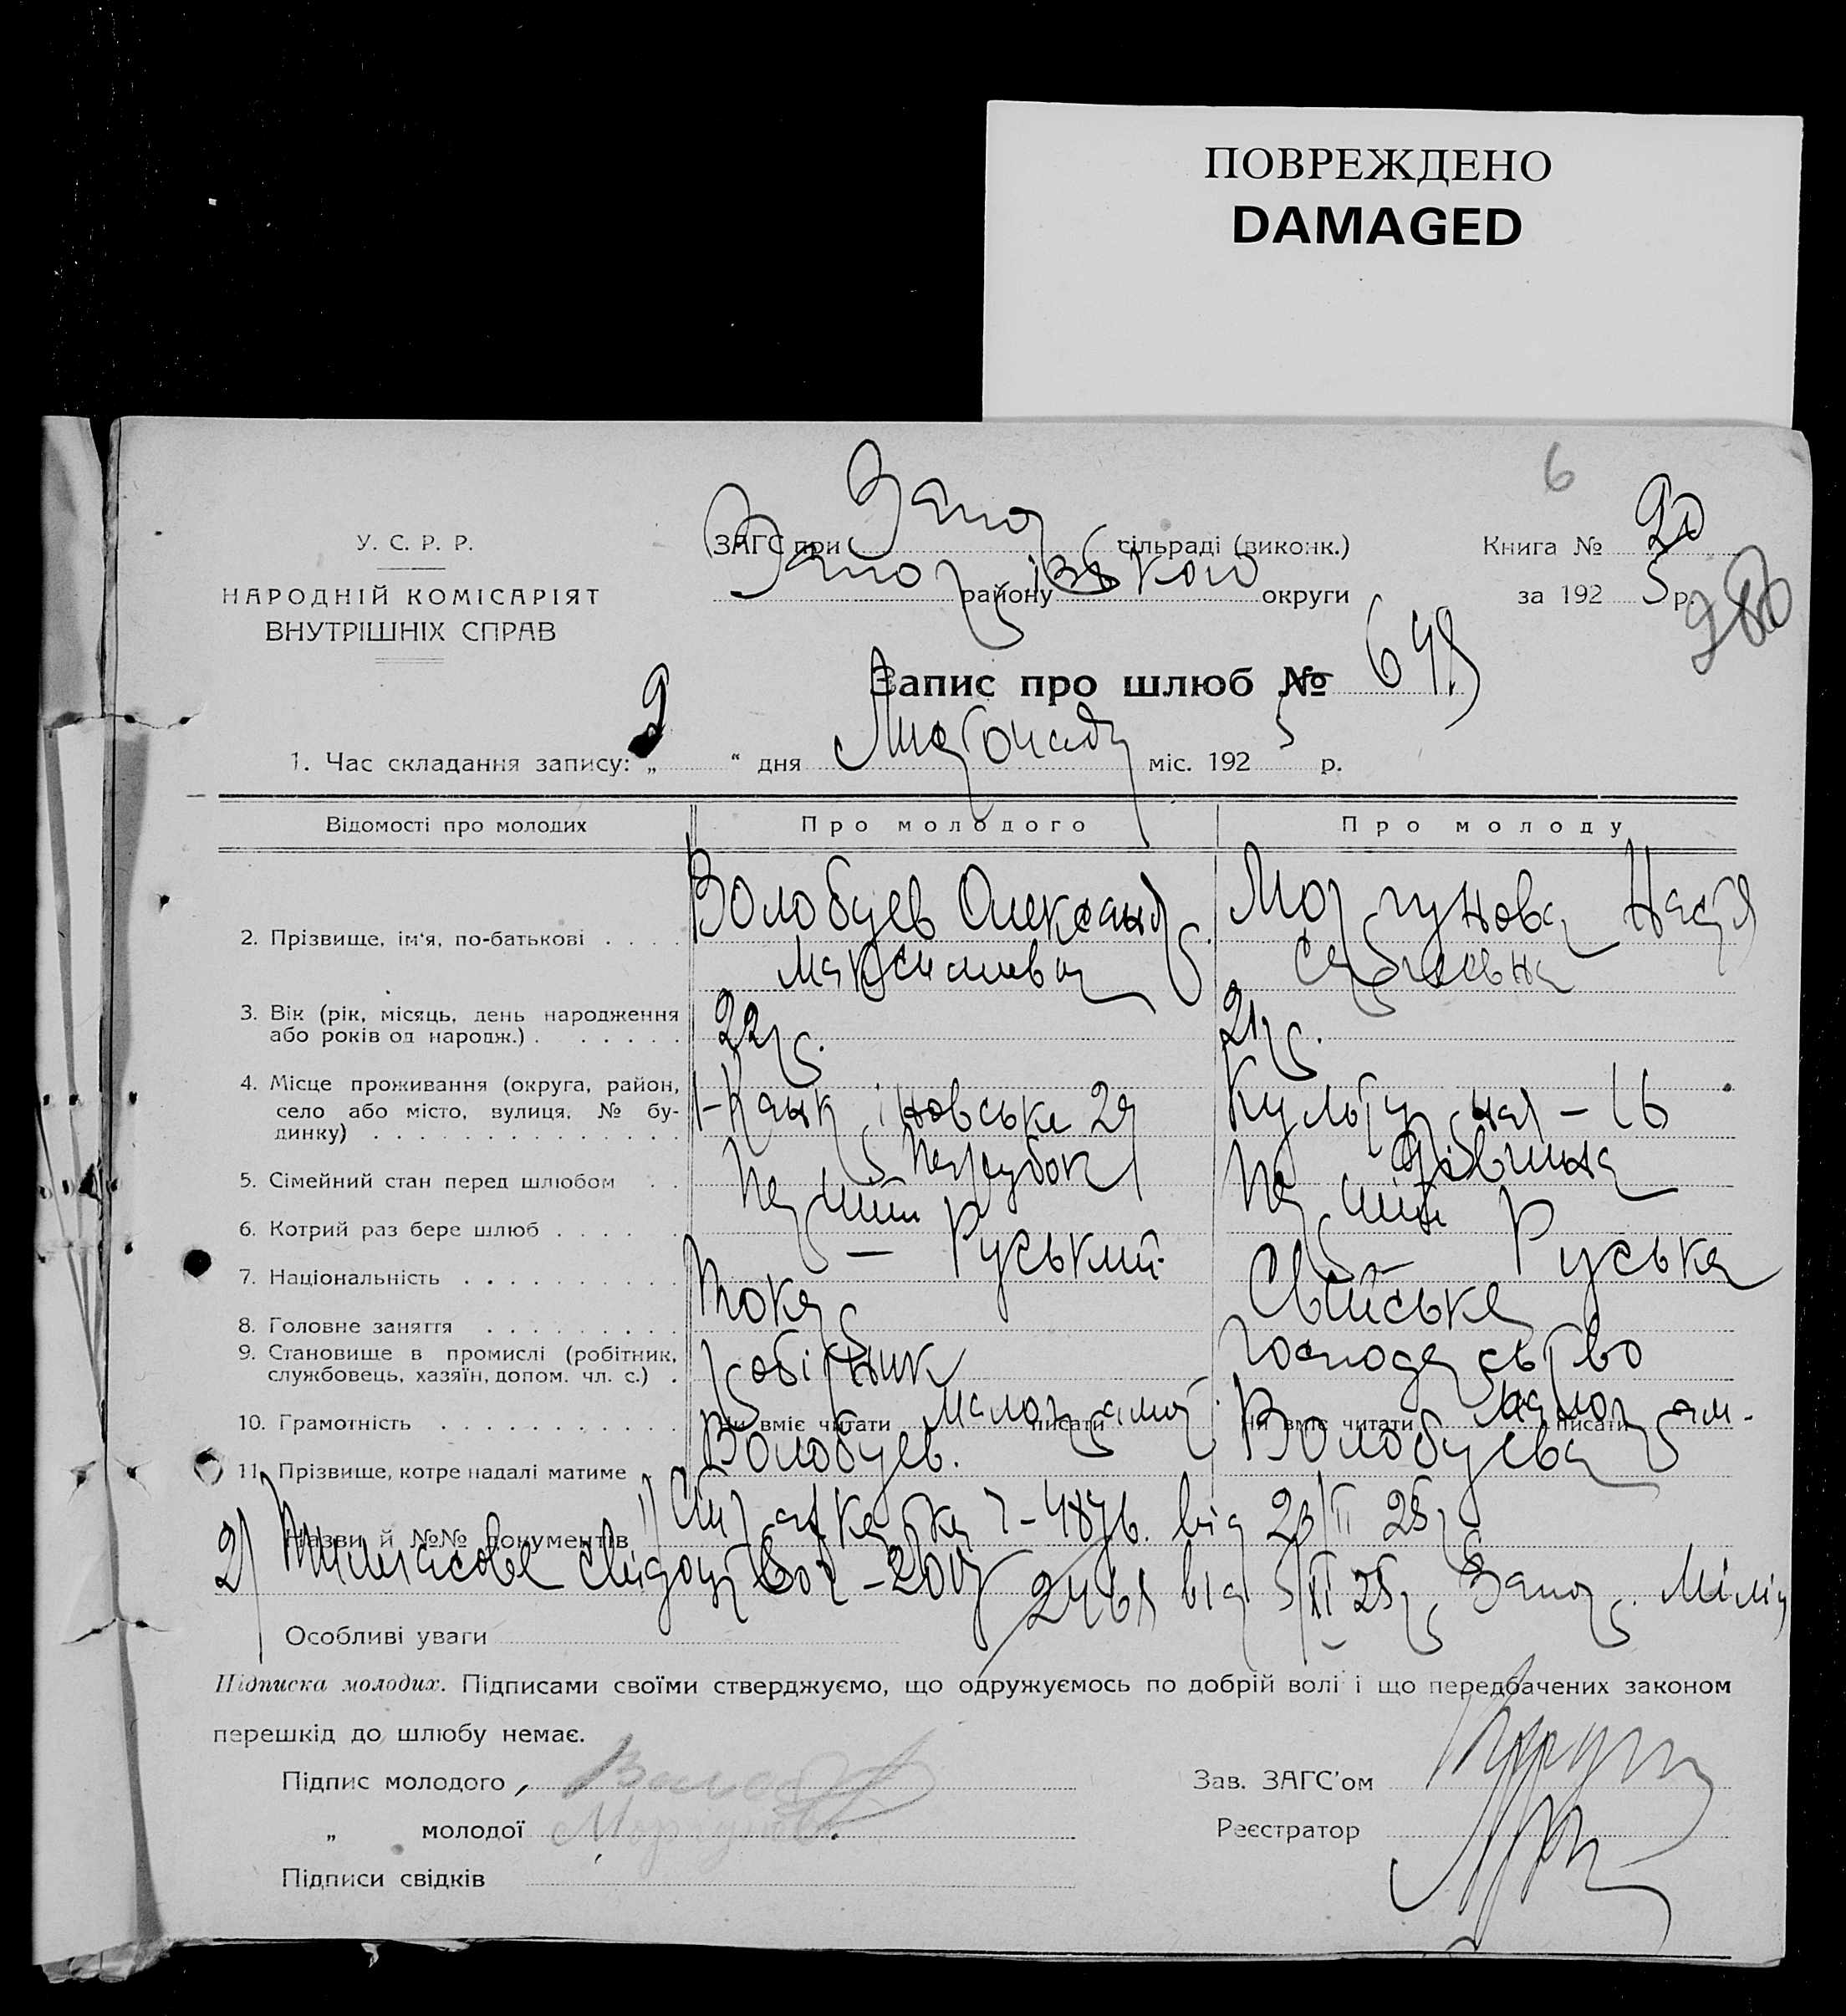 ПОВРЕЖДЕНО
DAMAGED
6
У. С. Р. Р.
НАРОДНІЙ КОМІСАРІЯТ
ВНУТРІШНІХ СПРАВ
ЗАГС при Запор сільраді (виконк.)
Запорізького району округи
Книга № 20
за 1925 р.
Запис про шлюб № 649
1. Час складання запису: „ 9 “ дня Листопада міс. 1925 р.
Відомості про молодих
Про молодого
Про молоду
2. Прізвище, ім'я, по-батькові . . . . Волобуев Олександр Моргунова Настя
Максимович Сергеевна
3. Вік (рік, місяць, день народження
або років од народж.) . . . . . . 22 р. 21 р.
4. Місце проживання (округа, район,
село або місто, вулиця, № бу-
динку) . . . . . . . . . . . . . . 29 Культурная – 16
5. Сімейний стан перед шлюбом . . Парубок Дівчина
6. Котрий раз бере шлюб . . . . . Перший Перший
7. Національність . . . . . . . . . . – Руський – Руська
8. Головне заняття . . . . . . . . . Токар Свійське
9. Становище в промислі (робітник,
службовець, хазяїн, допом. чл. с.) . робітник господарство
10. Грамотність . . . . . . . . . . . Чи вміє читати малограмот. писати Чи вміє читати малограм. писати
11. Прізвище, котре надалі матиме Волобуев. Волобуева
Назви й №№ документів 1) від 25 р.
2) Тимчасове свідоцтво від 5/XI 25 р. Запор. Міліц
Особливі уваги
Підписка молодих. Підписами своїми стверджуємо, що одружуємось по добрій волі і що передбачених законом
перешкід до шлюбу немає.
Підпис молодого
Зав. ЗАГС'ом
„ молодої Моргунова
Реєстратор
Підписи свідків